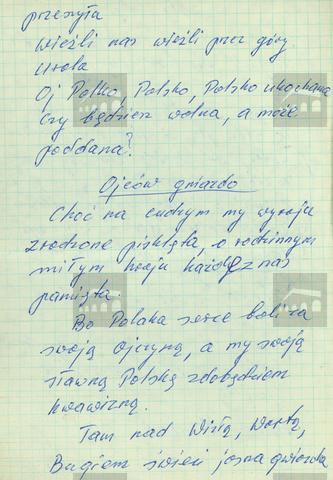 przesyła
wieźli nas wieźli przez góry
Urala
Oj Polko, Polsko, Polsko ukochana
Czy będziesz wolna, a może
poddana?
Ojców gniazdo
Choć na cudzym my wyraju
zrodzone pisklęta, o rodzinnym
miłym kraju każde z nas
pamięta.
Bo Polaka serce boli za
swoją Ojczyzną, a my swoją
sławną Polskę zdobędziem
krwawizną.
Tam nad Wisłą, Wartą,
Bugiem świeci jasna gwiazdka